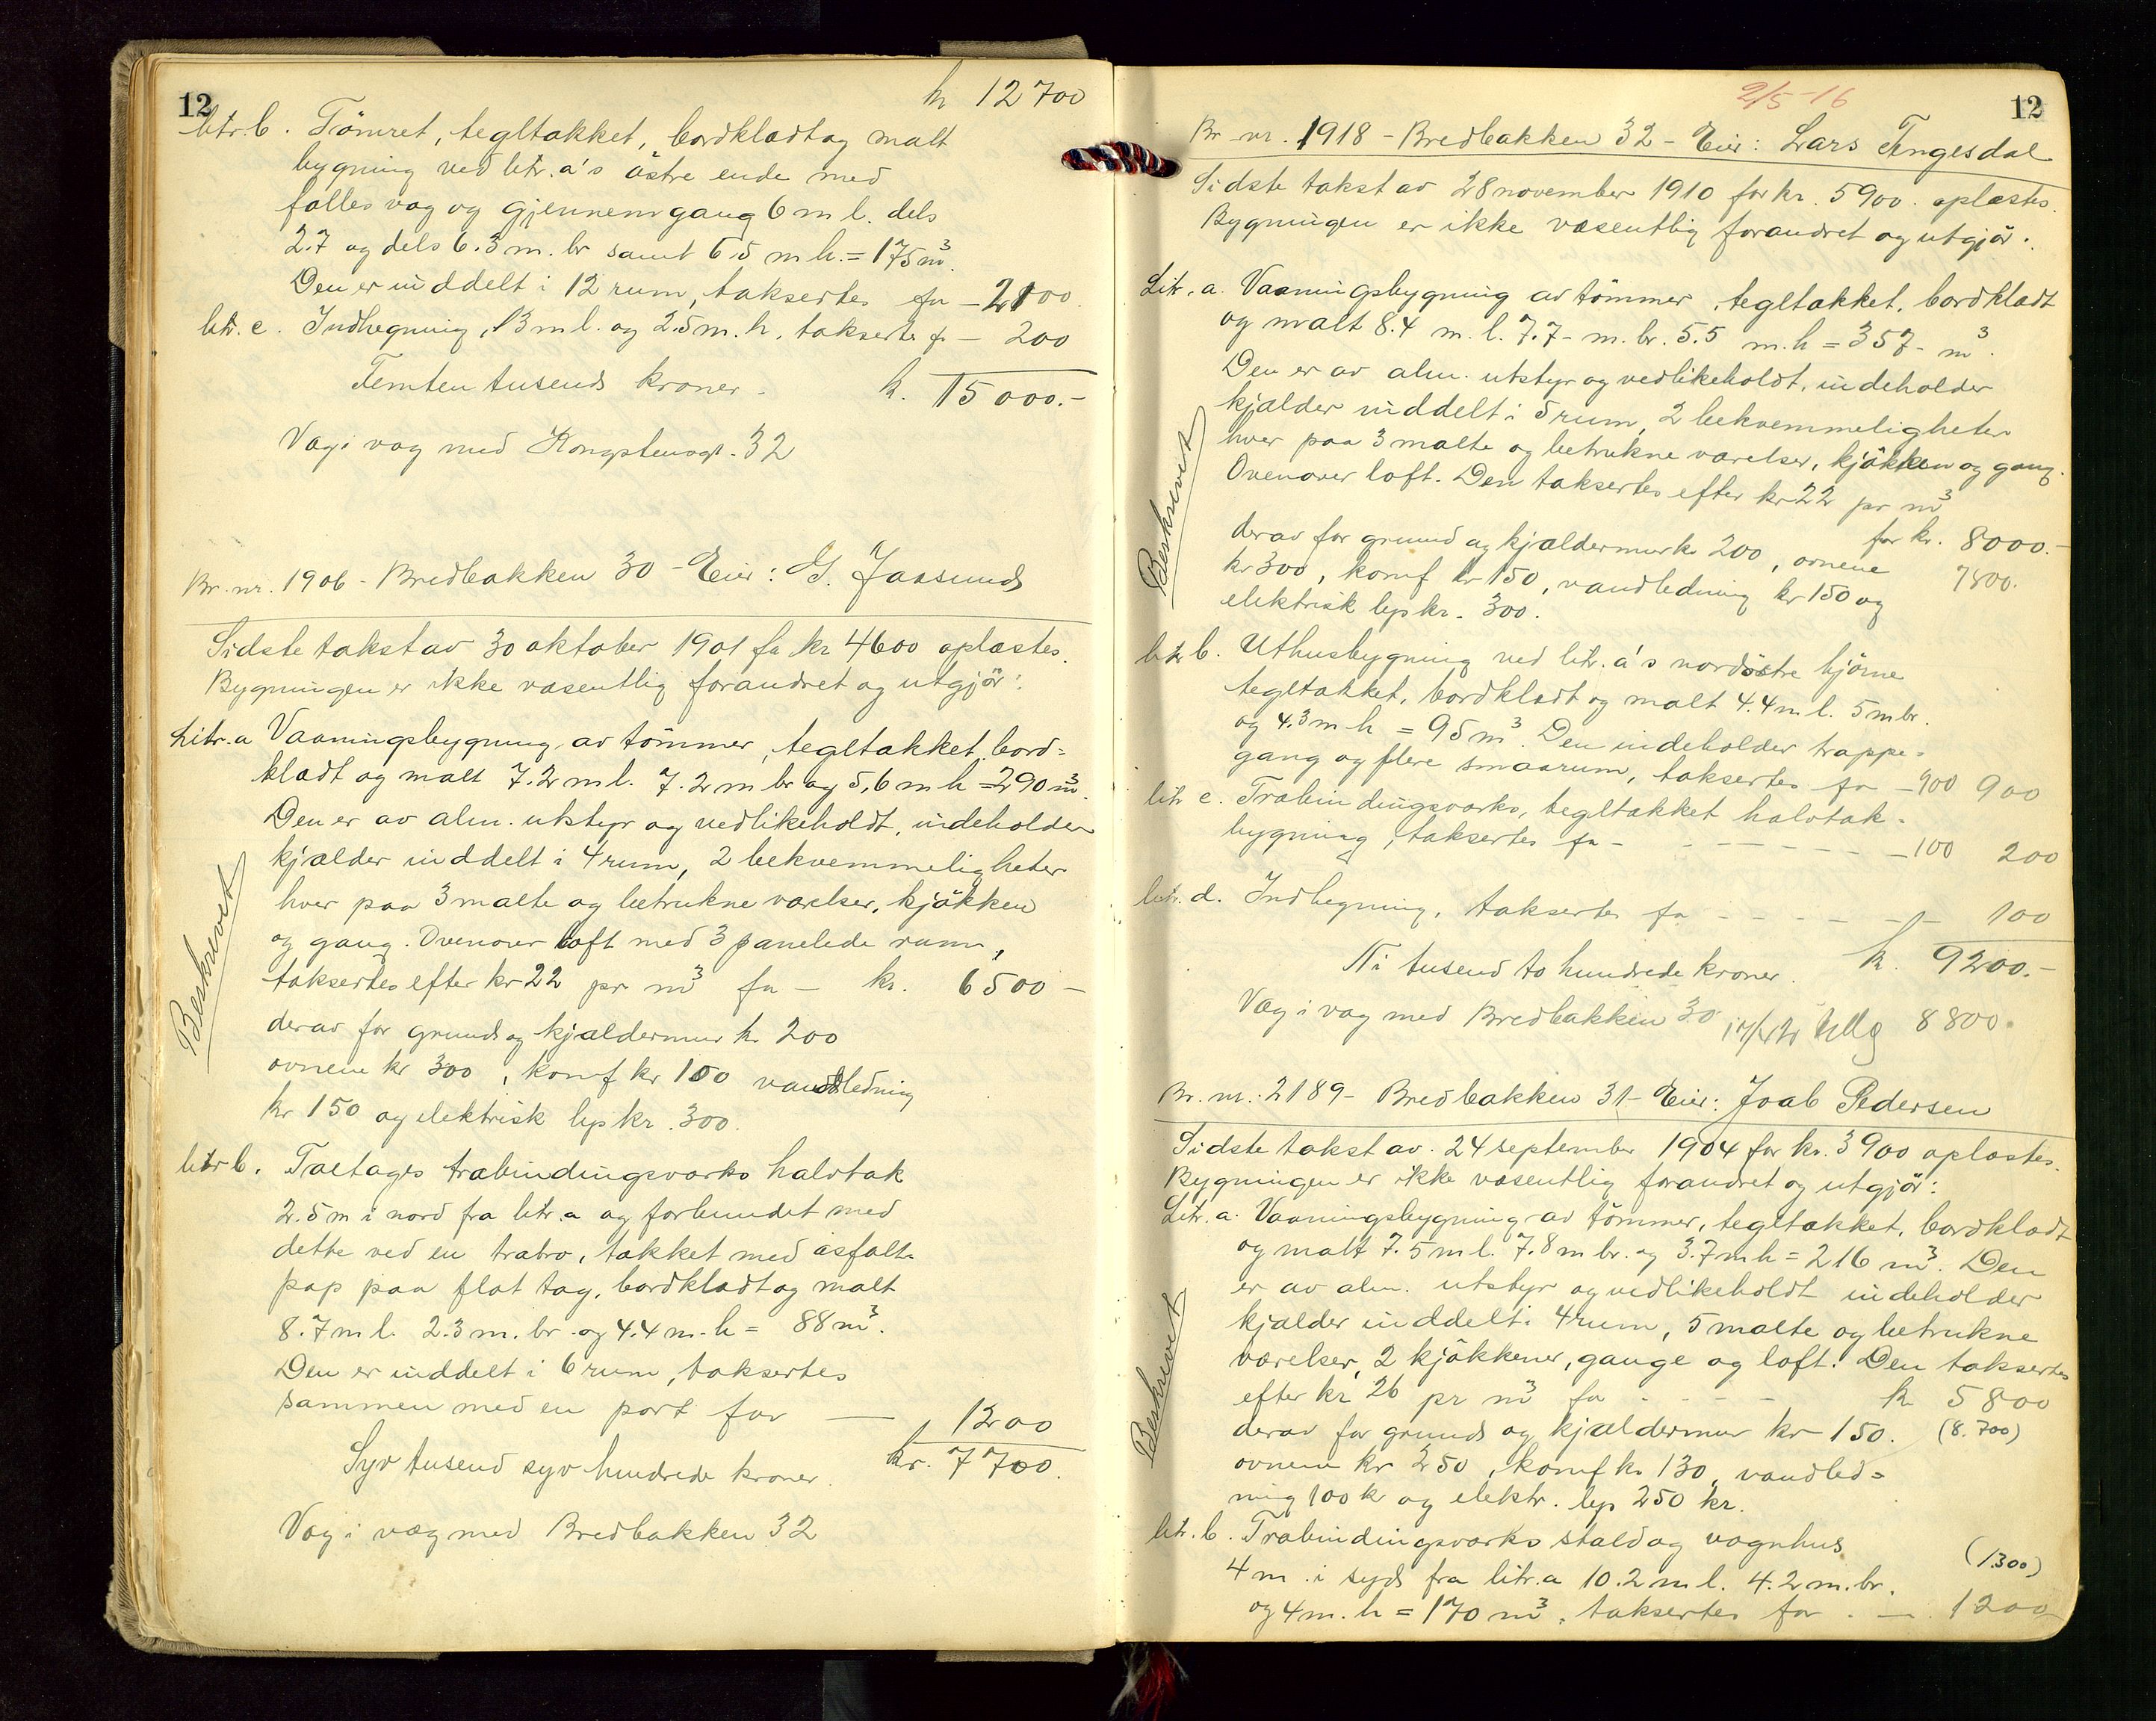 12
kr 12700
litr. b. Tömret, tegltakket, bordklædt og malt
bygning ved litr. a's östre ende med
fælles væg og gjennemgang 6 m l. dels
2.7 og dels 6.3 m. br samt 6.5 m h. = 175 m³.
Den er inddelt i 12 rum, taksertes for — 2100.
litr. c. Indhegning, 13 m l. og 2.5 m. h. taksertes fr — 200
Femten tusend kroner. k. 15000.-
Væg i væg med Kongstensgt. 32
Br. nr. 1906 - Bredbakken 30 - Eier: G. Jaasund
Sidste takst av 30 oktober 1901 for kr 4600 oplæstes.
Bygningen er ikke væsentlig forandret og utgjör:
Litr. a Vaaningsbygning av tömmer, tegltakket, bord=
klædt og malt 7.2 m l. 7.2 m br og 5,6 m h = 290 m³.
Den er av alm. utstyr og vedlikeholdt, indeholder
kjælder inddelt i 4 rum, 2 bekvemmeligheter
hver paa 3 malte og betrukne værelser, kjökken
og gang. Ovenover loft med 3 panelede rum,
taksertes efter kr 22 pr m³ for — kr. 6500 —
derav for grund og kjældermur kr 200
ovnene kr 300, komf kr 100 vandledning
kr 150 og elektrisk lys kr. 300.
Beskrevet
litr b. Toetages træbindingsværks halvtak
2.5 m i nord fra litr. a og forbundet med
dette ved en træbro, takket med asfalt-
pap paa flat tag, bordklædt og malt
8.7 m l. 2.3 m. br. og 4.4 m. h = 88 m³.
Den er inddelt i 6 rum, taksertes
sammen med en port for — 1200
Syv tusend syv hundrede kroner. kr. 7700.
Væg i væg med Bredbakken 32
2/5-16
12
Br. nr. 1918 - Bredbakken 32 - Eier: Lars Tengesdal
Sidste takst av 28 november 1910 for kr. 5900. oplæstes.
Bygningen er ikke væsentlig forandret og utgjör:
Litr. a. Vaaningsbygning av tömmer, tegltakket, bordklædt
og malt 8.4 m. l. 7.7 - m. br. 5.5 m. h = 357 - m³.
Den er av alm. utstyr og vedlikeholdt, indeholder
kjælder inddelt i 5 rum, 2 bekvemmeligheter
hver paa 3 malte og betrukne værelser, kjökken og gang.
Ovenover loft. Den taksertes efter kr 22 pr m³
for kr. 8000.-
derav for grund og kjældermur kr 200, ovnene 7800.
kr 300, komf kr 150, vandledning kr 150 og
elektrisk lys kr. 300.
Beskrevet
litr b. Uthusbygning ved litr. a's nordöstre hjörne
tegltakket, bordklædt og malt 4.4 m l. 5 m br.
og 4.3 m h = 95 m³. Den indeholder trappe=
gang og flere smaarum, taksertes for — 900 900
litr c. Træbindingsværks, tegltakket halvtak=
bygning, taksertes for - - - - - — 100 200
litr. d. Indhegning, taksertes for - - - - — 100
Ni tusend to hundrede kroner. k. 9200.—
Væg i væg med Bredbakken 30 8800.
Br. nr. 2189 - Bredbakken 31 - Eier: Joab Pedersen
Sidste takst av. 24 september 1904 for kr. 3900 oplæstes.
Bygningen er ikke væsentlig forandret og utgjör:
Litr. a. Vaaningsbygning av tömmer, tegltakket, bordklædt
og malt 7.5 m l. 7.8 m br. og 3.7 m h = 216 m³. Den
er av alm. utstyr og vedlikeholdt indeholder
kjælder inddelt i 4 rum, 5 malte og betrukne
værelser, 2 kjökkener, gange og loft. Den taksertes
efter kr 26 pr m³ for - - - - k 5800
derav for grund og kjældermur kr 150. (8.700)
ovnene kr 250, komf kr 130, vandled=
ning 100 kr og elektr. lys 250 kr.
Beskrevet
litr. b. Træbindingsværks stald og vognhus
4 m. i syd fra litr. a 10.2 m l. 4.2 m. br. (1300)
og 4 m. h = 170 m³, taksertes for . — . 1200